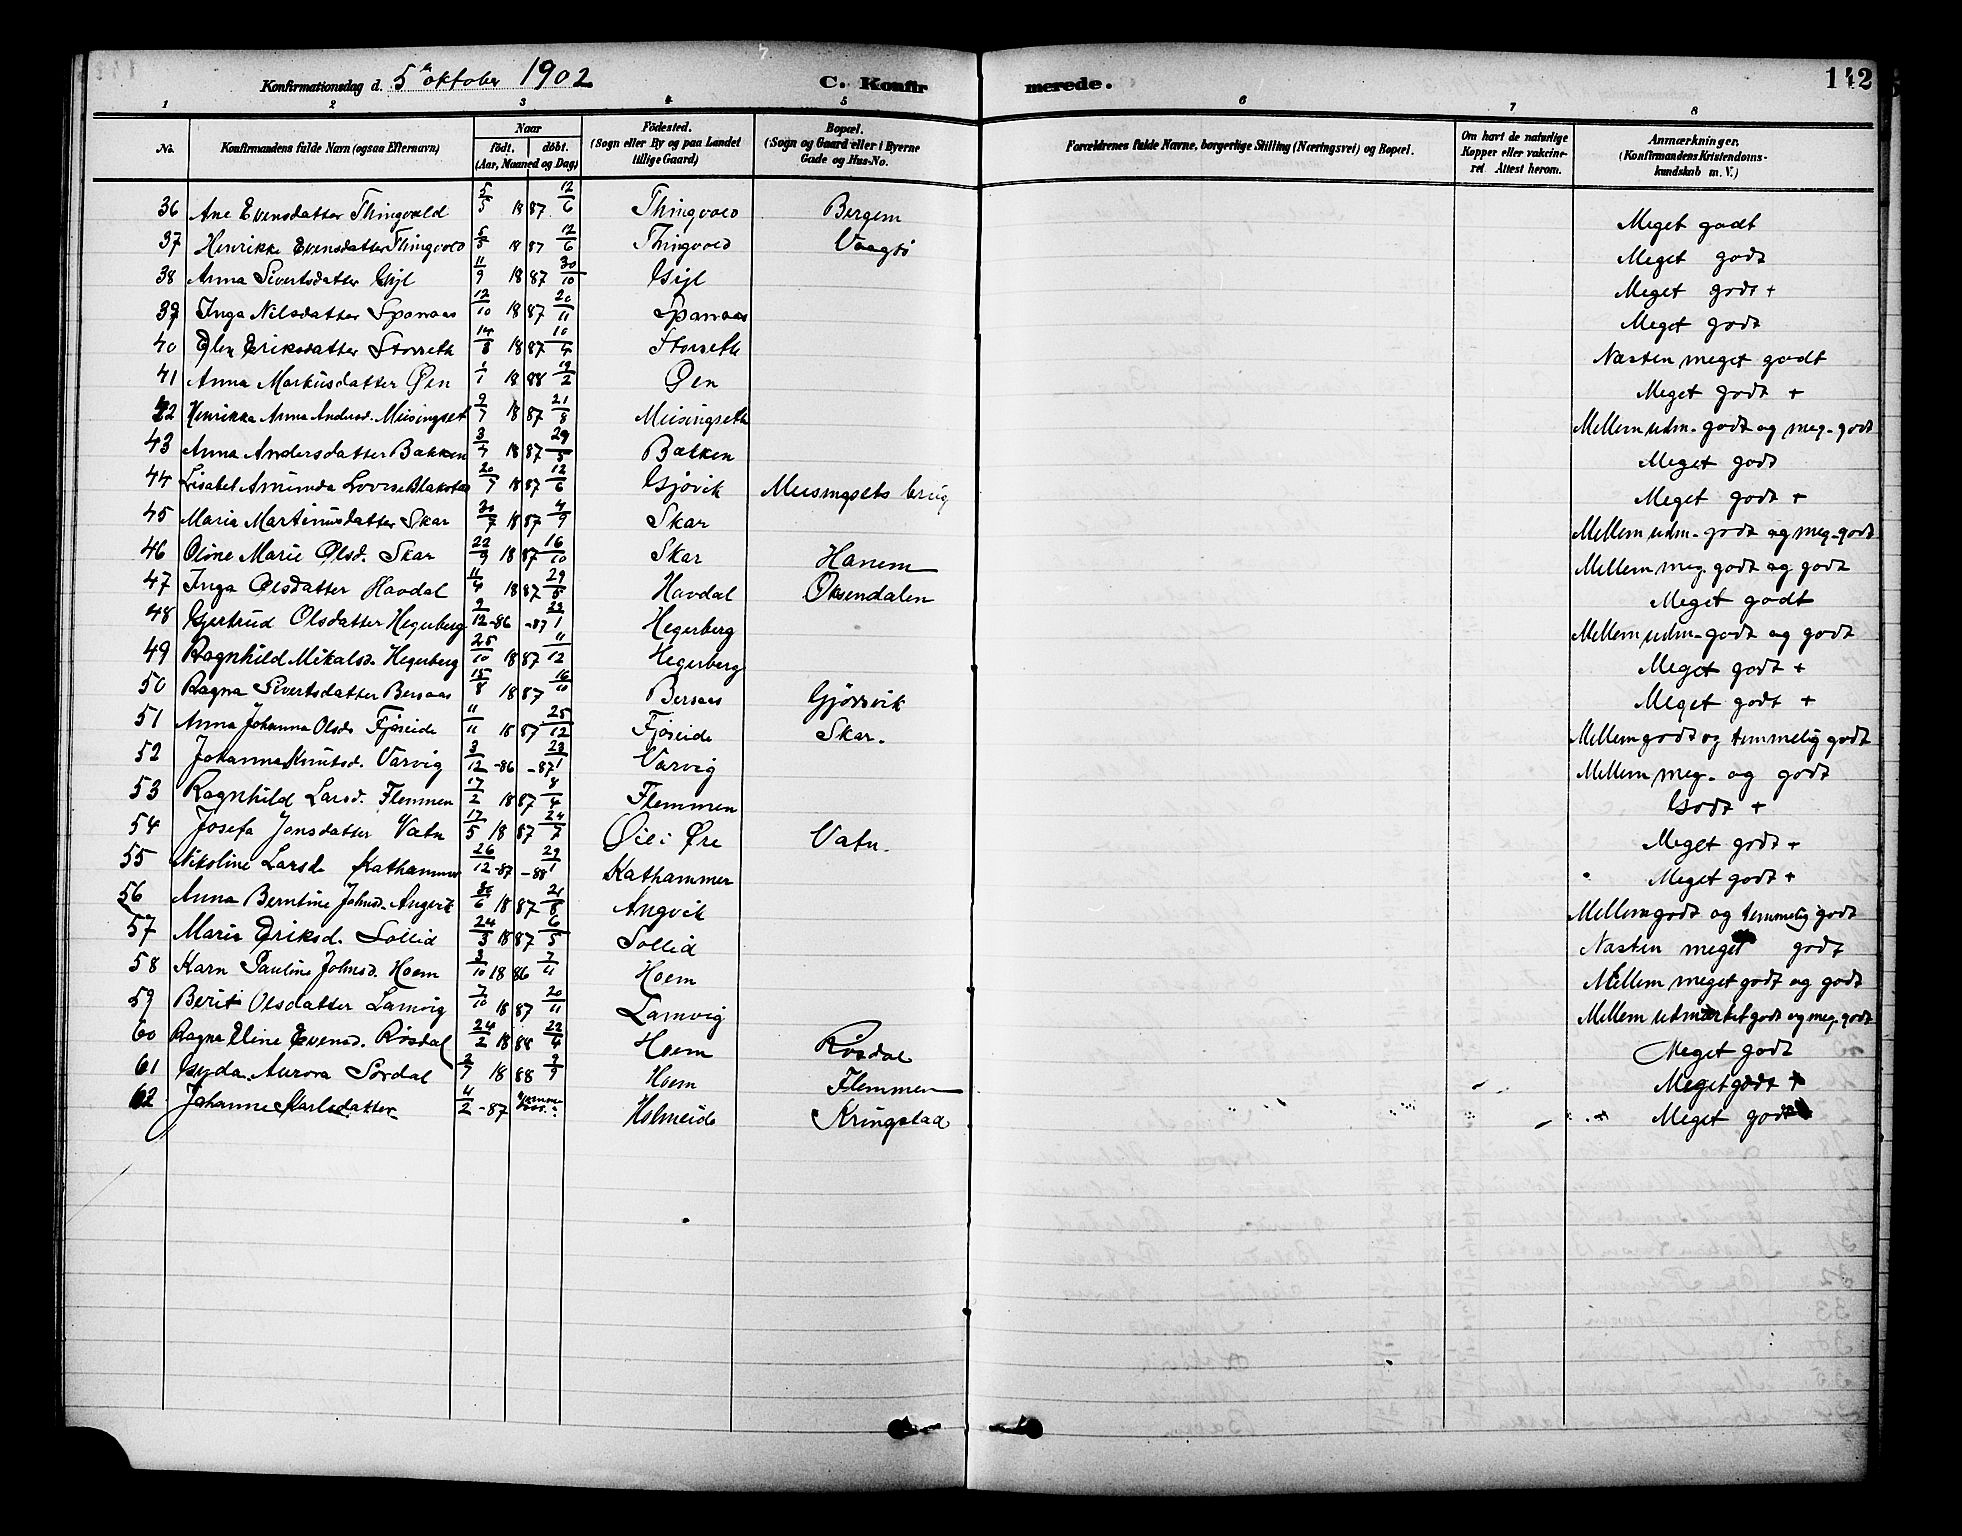 Konfirmationsdag d. 5te oktober 1902 C. Konfirmerede. 142
1 2 3 4 5 6 7 8
No. Konfirmandens fulde Navn (ogsaa Efternavn) Naar født. døbt. (Aar, Maaned og Dag) Fødested. (Sogn eller By og paa Landet tillige Gaard) Bopæl. (Sogn og Gaard eller i Byerne Gade og Hus-No. Forældrenes fulde Navne, borgerlige Stilling (Næringsvei) og Bopæl. Om havt de naturlige Kopper eller vakcineret Attest herom. Anmærkninger. (Konfirmandens Kristendomskundskab m. V.)
36 Ane Evensdatter Thingvold 5/5 1887 12/6 Thingvold Bergem Meget godt
37 Henrikke Evensdatter Thingvold 5/5 1887 12/6 Thingvold Vaagbö Meget godt
38 Anna Sivertsdatter Gyl 11/9 1887 30/10 Gyl Meget godt +
39 Inga Nilsdatter Spanaas 12/10 1887 20/11 Spanaas Meget godt
40 Elen Eriksdatter Storseth 1887 10/4 Storseth Næsten meget godt
41 Anna Markusdatter Øen 1/1 1888 19/2 Øen Meget godt +
42 Henrikka Anna Andersd. Meisingset 2/7 1887 21/8 Meisingseth Mellem udm. godt og meg. godt
43 Anna Andersdatter Bakken 1887 29/5 Bakken Meget godt
44 Lisabet Amunda Lovise Blakstad 1887 12/6 Gjövik Meisingsets brug Meget godt +
45 Maria Martinusdatter Skar 30/7 1887 4/9 Skar Mellem udm. godt og meg. godt
46 Oline Marie Olsd. Skar 22/9 1887 16/10 Skar Hanem Mellem meg. godt og godt
47 Inga Olsdatter Havdal 11/4 1887 29/5 Havdal Öksendalen Meget godt
48 Gjertrud Olsdatter Hegerberg 9/12 -86 -87 Hegerberg Mellem udm. godt og godt
49 Ragnhild Mikalsd. Hegerberg 25/10 1887 11/12 Hegerberg Meget godt +
50 Ragna Sivertsdatter Bersaas 15/8 1887 16/10 Bersaas Gjörsvik Meget godt +
51 Anna Johanna Olsd. Fjöseide 11/11 1887 25/12 Fjöseide Skar. Mellem godt og temmelig godt
52 Johanna Knutsd. Varvig 3/12 -86 -87 23/1 Varvig Mellem meg. og godt
53 Ragnhild Larsd. Flemmen 17/2 1887 8/4 Flemmen Godt +
54 Josefa Jonsdatter Vatn 17/5 1887 24/7 Öie i Øre Vatn. Meget godt +
55 Nikoline Larsd. Kathammer 26/12 -87 -88 29/1 Kathammer Meget godt +
56 Anna Berntine Johnsd. Angvik 30/6 1887 21/8 Angvik Mellem godt og temmelig godt
57 Marie Eriksd. Sollid 24/3 1887 6/5 Sollid Næsten meget godt
58 Karn Pauline Johnsd. Hoem 3/10 1886 7/11 Hoem Mellem meget godt og godt
59 Berit Olsdatter Lamvig 7/10 1887 20/11 Lamvig Mellem udmærket godt og meg. godt
60 Ragna Eline Evensd. Rösdal 24/2 1888 22/4 Hoem Rösdal Meget godt
61 Gyda Aurora Sördal 2/7 1888 2/9 Hoem Flemmen Meget godt +
62 Johanne Karlsdatter 11/2 -87 Holmeide Kringstad Meget godt